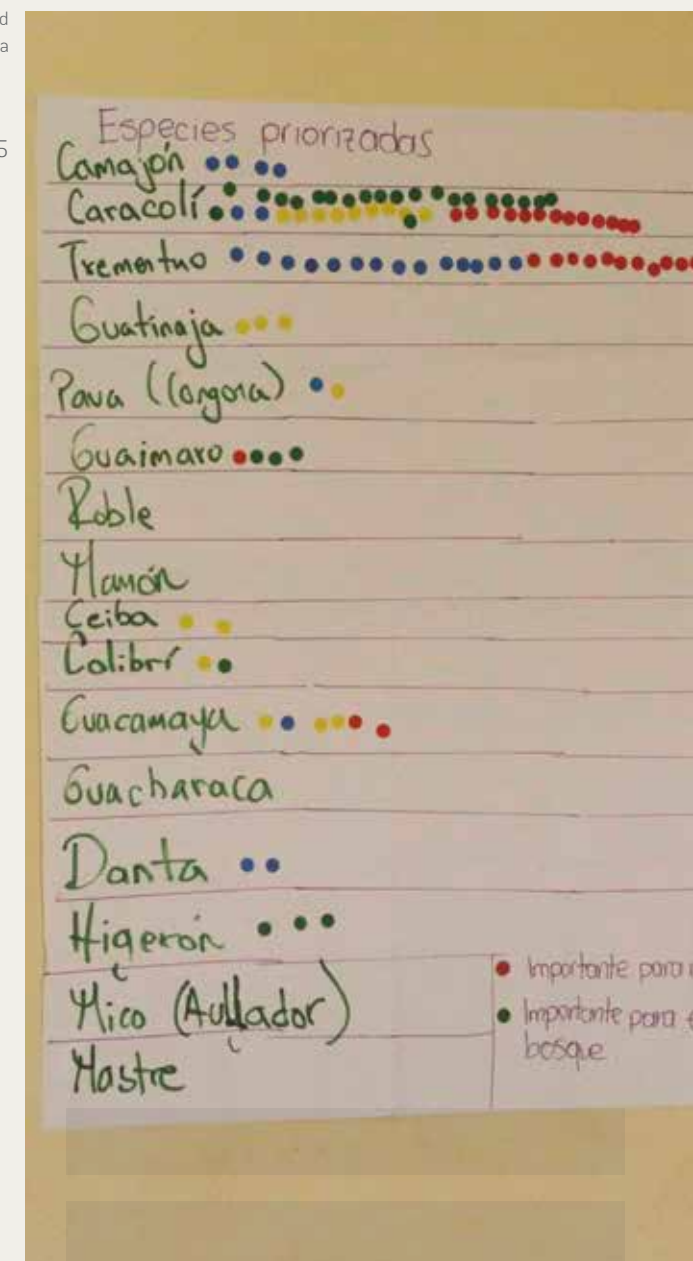 d
a
5
Especies priorizadas
Camajón
Caracolí
Trementino
Guatinaja
Pava (Congona)
Guaimaro
Roble
Mamón
Ceiba
Colibrí
Guacamaya
Guacharaca
Danta
Higerón
Mico (Aullador)
Mastre
Importante para
Importante para e
bosque